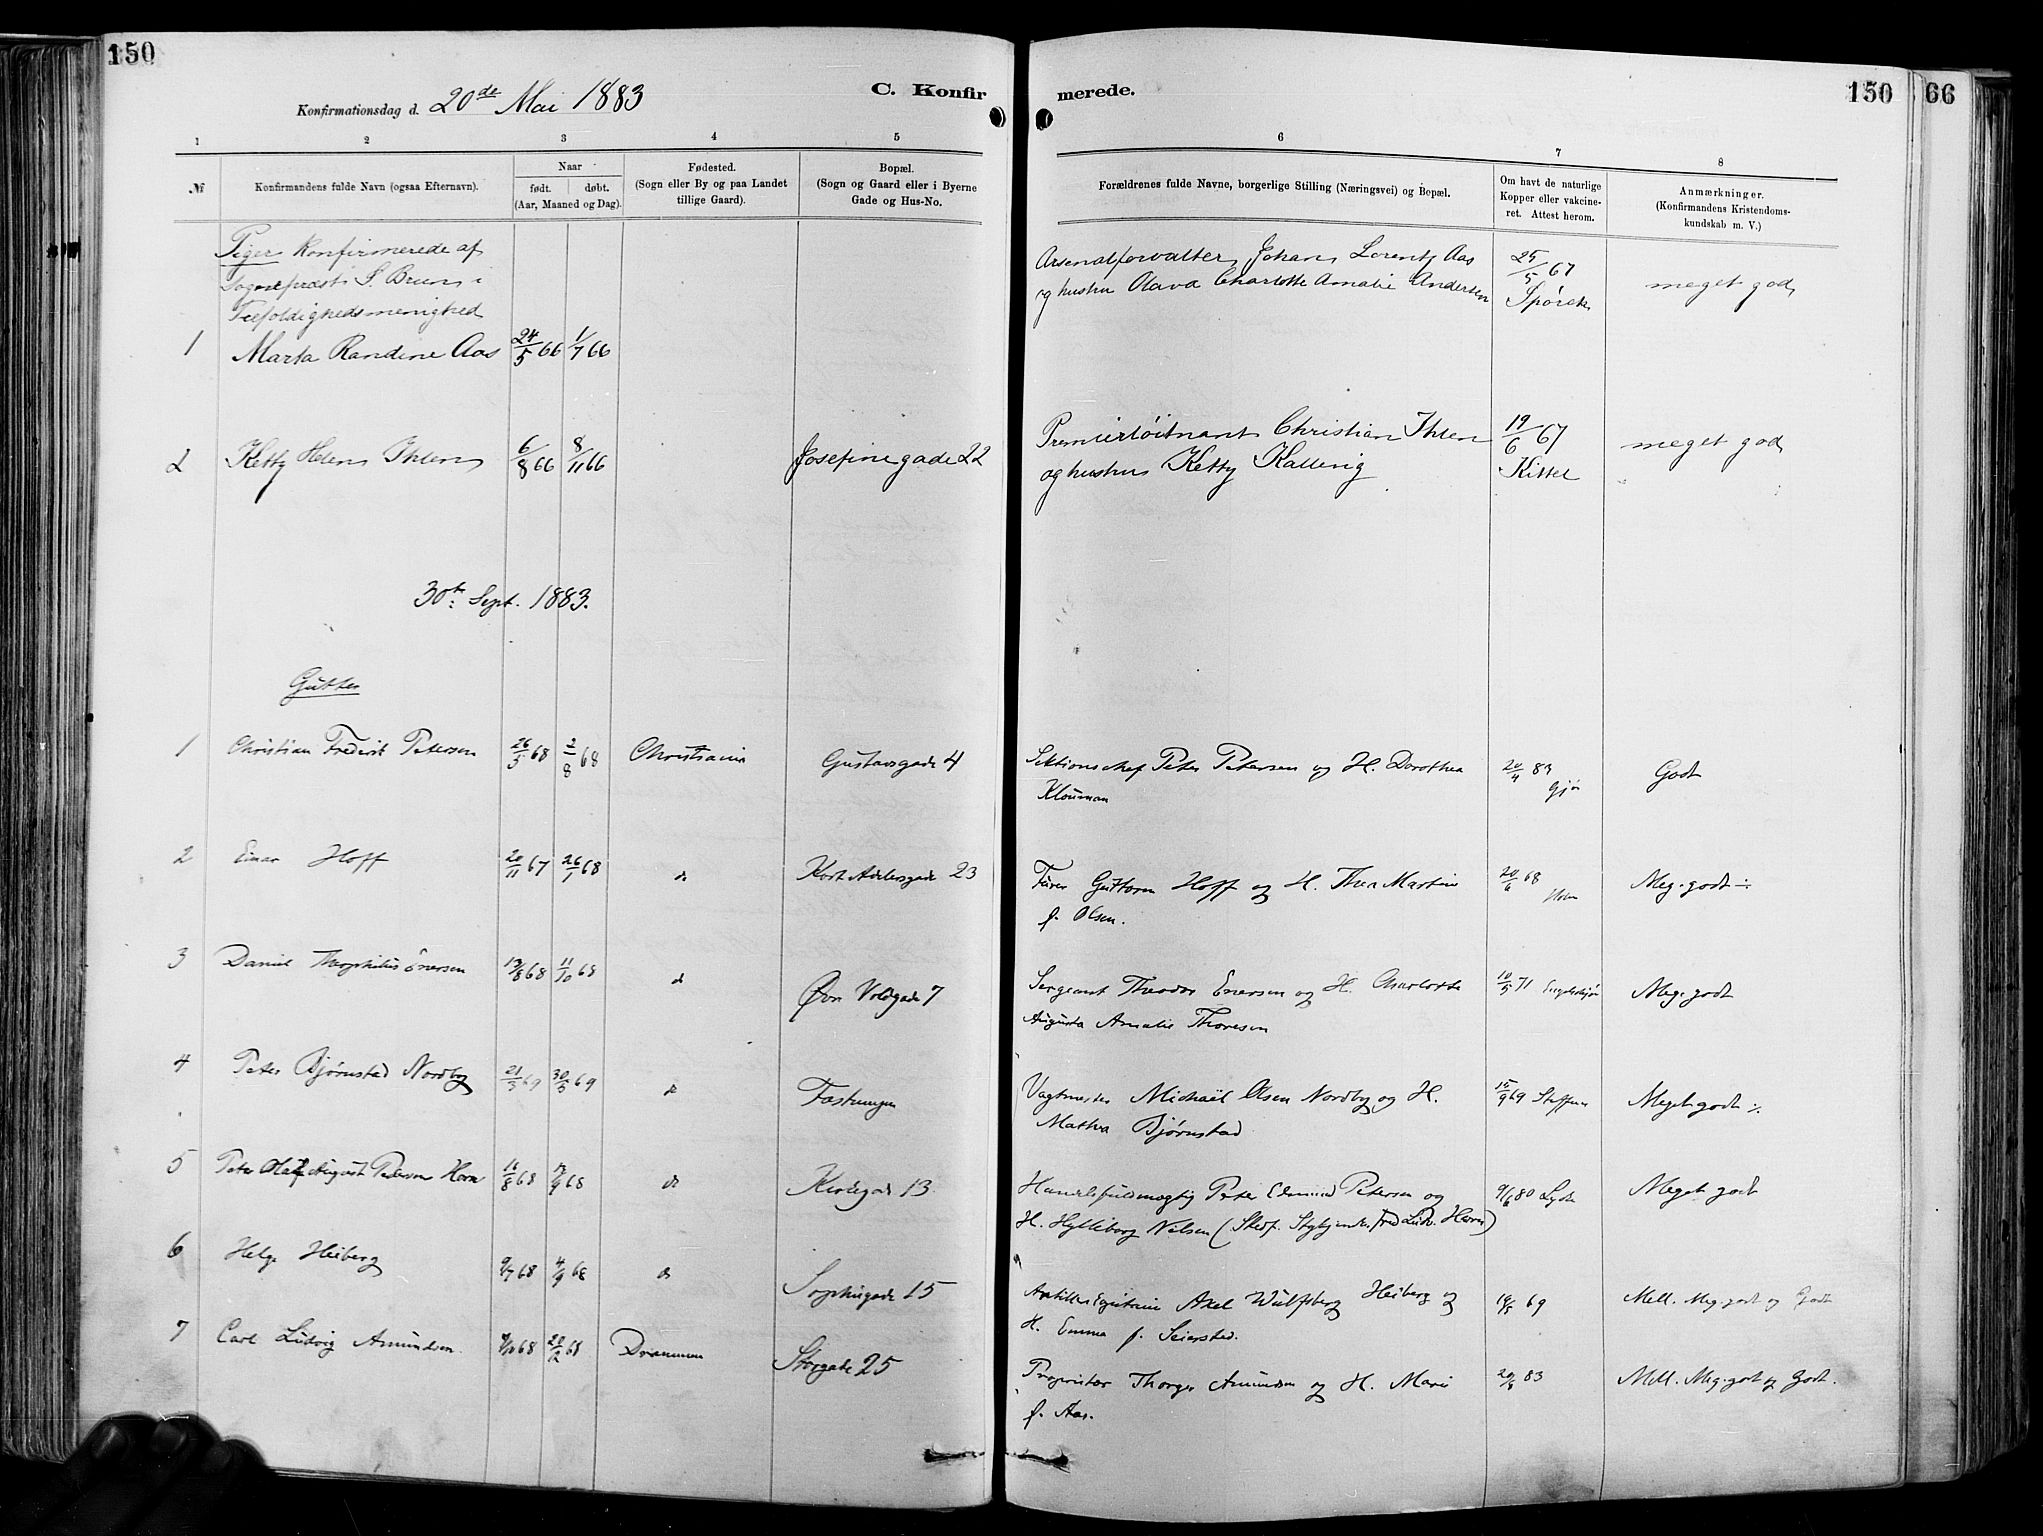 150
Konfirmationsdag d. 20de Mai 1883
C. Konfir
1 2 3 4 5
№
Konfirmandens fulde Navn (ogsaa Efternavn).
Naar
født. døbt.
(Aar, Maaned og Dag).
Fødested.
(Sogn eller By og paa Landet
tillige Gaard).
Bopæl.
(Sogn og Gaard eller i Byerne
Gade og Hus-No.
Piger Konfirmerede af
Sognepræst S. Bruun i
Trefoldighedsmenighed
1 Marta Randine Aas 24/5 66 1/7 66
2 Ketty Helene Ihlen 6/8 66 8/11 66 Josefinegade 22
30te Sept. 1883.
Gutter
1 Christian Frederik Petersen 26/5 68 2/8 68 Christiania Gustavsgade 4
2 Einar Hoff 20/11 67 26/1 68 do Kort Adelersgade 23
3 Daniel Theophilus Enersen 13/8 68 11/10 68 do Øvre Voldgade 7
4 Peter Bjørnstad Nordby 21/3 69 30/5 69 do Fæstningen
5 Peter Olaf August Petersen Horn 16/8 68 /9 68 do Kirkegade 13
6 Helge Heiberg 9/7 68 4/9 68 do Sophiegade 15
7 Carl Ludvig Amundsen 68 20/12 68 Drammen Storgade 25
merede.
150 66
6 7 8
Forældrenes fulde Navne, borgerlige Stilling (Næringsvei) og Bopæl.
Om havt de naturlige
Kopper eller vakcine-
ret. Attest herom.
Anmærkninger.
(Konfirmandens Kristendoms-
kundskab m. V.)
Arsenalforvalter Johan Lorentz Aas 25/5 67 meget god
og hustru Olava Charlotte Amalie Andersen Spørck
Premierløitnant Christian Ihlen 19/6 67 meget god
og hustru Ketty Kallevig Kittel
Sektionschef Peter Petersen og H. Dorothea 20/4 83 Gjør Godt
Klouman
Furer Guttorm Hoff og H. Thea Martine 20/6 68 Holm Meg. godt ÷
f. Olsen.
Sergeant Theodor Enersen og H. Charlotte 10/5 71 Meg. godt
Augusta Amalie Thoresen
Vagtmester Michaël Olsen Nordby og H. 15/9 69 Steffens Meget godt ÷
Mathea Bjørnstad
Handelsfuldmægtig Peter Edmund Petersen og 9/6 80 Meget godt
H. Hylleborg Nelsen (Stedf. Fred. Ludv. Horn)
Artillerikaptein Axel Wulfsberg Heiberg og 69 Mell. Meg. godt og Godt
H. Emma f. Seierstad.
Proprietær Thorger Amundsen og H. Marie 83 Mell. Meg. godt og Godt.
f. Aas.